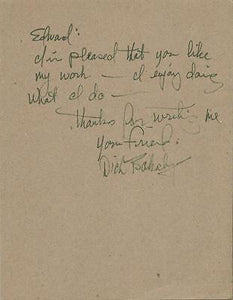 Edward:
I'm pleased that you like
my work — I enjoy doing
what I do —
Thanks for writing me
Your friend:
Dick